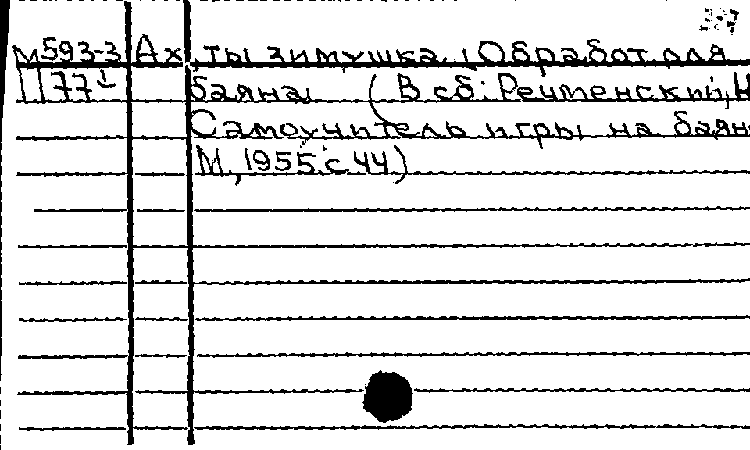 М593-3 Ах, ты зимушка. (Обработ. для
1177 баяна) (В сб: Речменский, Н
Самоучитель игры на баян
М., 1955. с. 44)